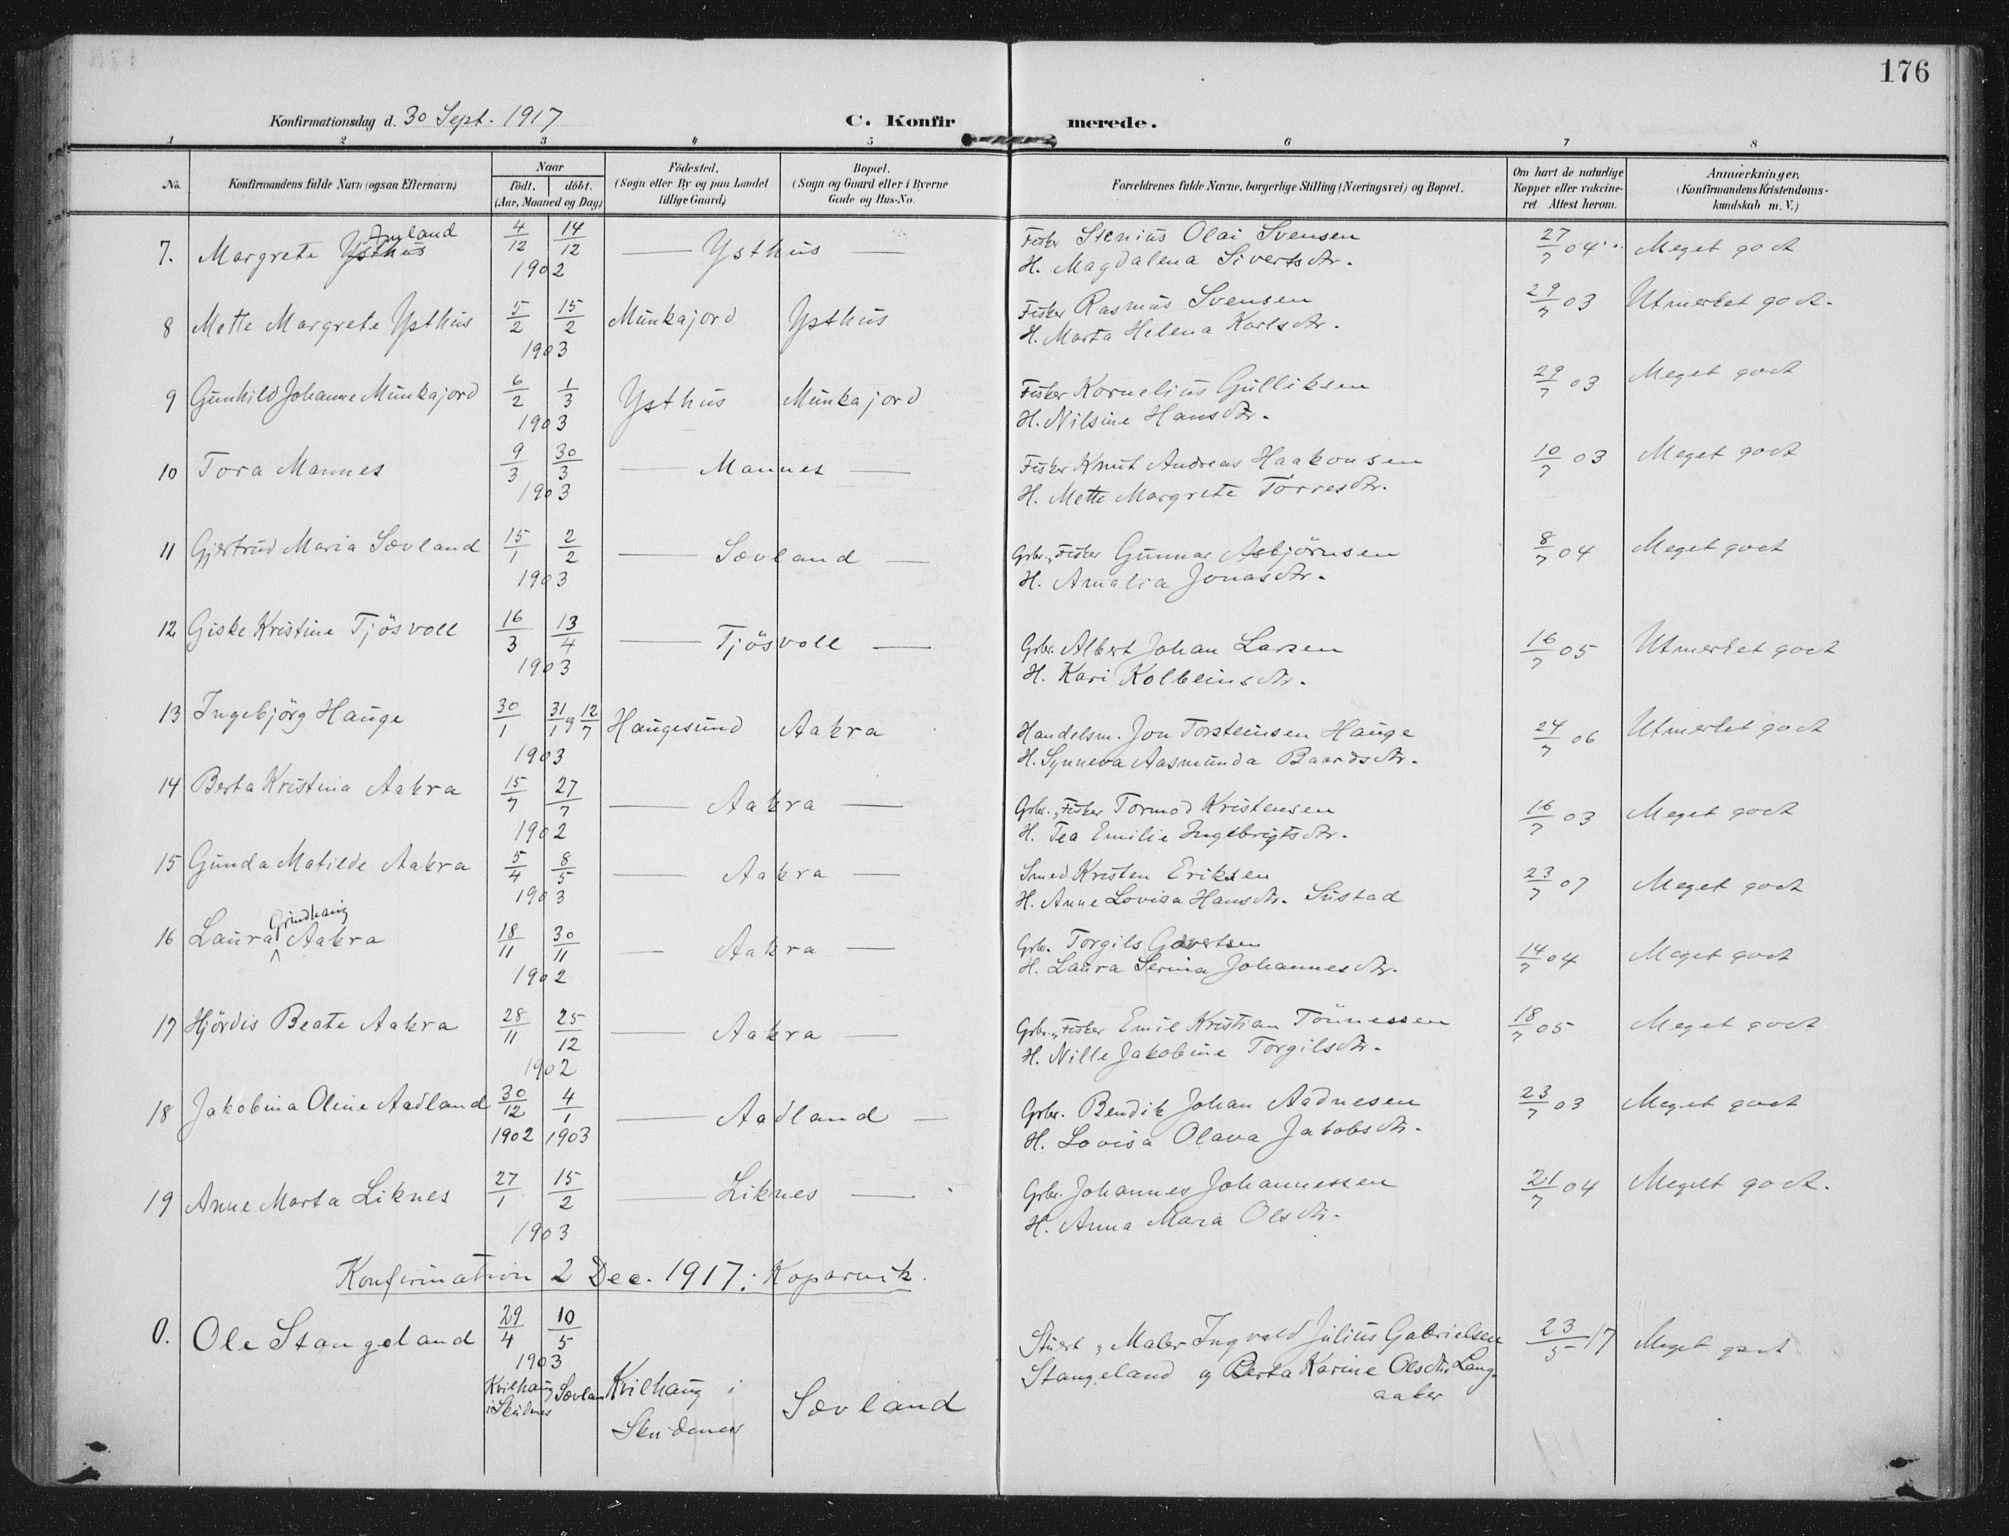 176
Konfirmationsdag d. 30 Sept. 1917 C. Konfir merede.
1 2 3 4 5 6 7 8
No. Konfirmandens fulde Navn (ogsaa Efternavn) Naar födt. döbt. (Aar, Maaned og Dag) Födested. (Sogn eller By og paa Landet tillige Gaard) Bopæl. (Sogn og Gaard eller i Byerne Gade og Hus-No. Forældrenes fulde Navne, borgerlige Stilling (Næringsvei) og Bopæl. Om havt de naturlige Kopper eller vakcineret Attest herom. Anmærkninger, (Konfirmandens Kristendomskundskab m. V.)
7. Margrete Ysthus 4/12 14/12 — Ysthus — Fisker Stenius Olai Svensen 27/7 04 Meget godt
1902 H. Magdalena Sivertsdtr.
8 Mette Margrete Ysthus 5/2 15/2 Munkajord Ysthus Fisker Rasmus Svensen 29/7 03 Utmerket godt.
1903 H. Marta Helena Karlsdtr.
9 Gunhild Johanne Munkajord 6/2 1/3 Ysthus Munkajord Fisker Kornelius Gulliksen 29/7 03 Meget godt
1903 H. Nilsine Hansdtr.
10 Tora Mannes 9/3 30/3 — Mannes — Fisker Knut Andreas Haakonsen 10/7 03 Meget godt
1903 H. Mette Margrete Torresdtr.
11 Gjertrud Maria Sævland 15/1 2/2 — Sævland — Grbr. og Fisker Gunnar Asbjörnsen 8/7 04 Meget godt
1903 H. Amalia Jonasdtr.
12 Giske Kristine Tjösvoll 16/3 13/4 — Tjösvoll — Grbr. Albert Johan Larsen 16/7 05 Utmerket godt
1903 H. Kari Kolbeinsdtr.
13 Ingebjörg Hauge 30/1 31/1 og 12/7 Haugesund Aakra Handelsm. Jon Torsteinsen Hauge 24/7 06 Utmerket godt
1903 H. Synneva Aasmunda Baardsdtr.
14 Berta Kristina Aakra 15/7 27/7 — Aakra — Grbr. og Fisker Tormod Kristensen 16/7 03 Meget godt
1902 H. Tea Emilie Ingebrigtsdtr.
15 Gunda Matilde Aakra 5/4 8/5 — Aakra — Smed Kristen Eriksen 23/7 07 Meget godt
1903 H. Anne Lovisa Hansdtr. Sustad
Grindhaug
16 Laura Aakra 18/11 30/11 — Aakra — Grbr. Torgils Govertsen 14/7 04 Meget godt
1902 H. Laura Serina Johannesdtr.
17 Hjördis Beate Aakra 28/11 25/12 — Aakra — Grbr. og Fisker Emil Kristian Tönnessen 18/7 05 Meget godt
1902 H. Nille Jakobine Torgilsdtr.
18 Jakobina Oline Aadland 30/12 4/1 — Aadland — Grbr. Bendik Johan Aadnesen 23/7 03 Meget godt
1902 1903 H. Lovisa Olava Jakobsdtr.
19 Anne Marta Liknes 27/1 15/2 — Liknes — Grbr. Johannes Johannessen 21/7 04 Meget godt.
1903 H. Anna Maria Olsdtr.
Konfirmation 2 Dec. 1917 i Kopervik.
0. Ole Stangeland 29/4 10/5 Stuert og Maler Ingvald Julius Gabrielsen 23/5 17 Meget godt
1903 Stangeland og Berta Karine Olsdtr. Lang-
Kvilhaug i Skudenes Sævland Kvilhaug i Skudenes Sævland aaker